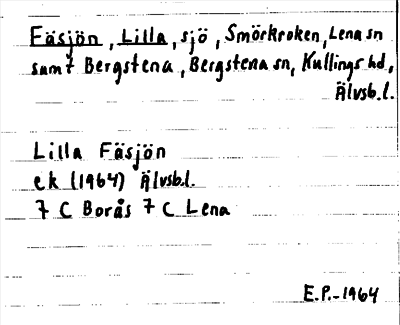 Fäsjön, Lilla, sjö, Smörkroken, Lena sn
samt Bergstena, Bergstena sn, Kullings hd,
Älvsb.l.
Lilla Fäsjön
ek (1964) Älvsb.l.
7 C Borås 7 C Lena
E.P.-1964